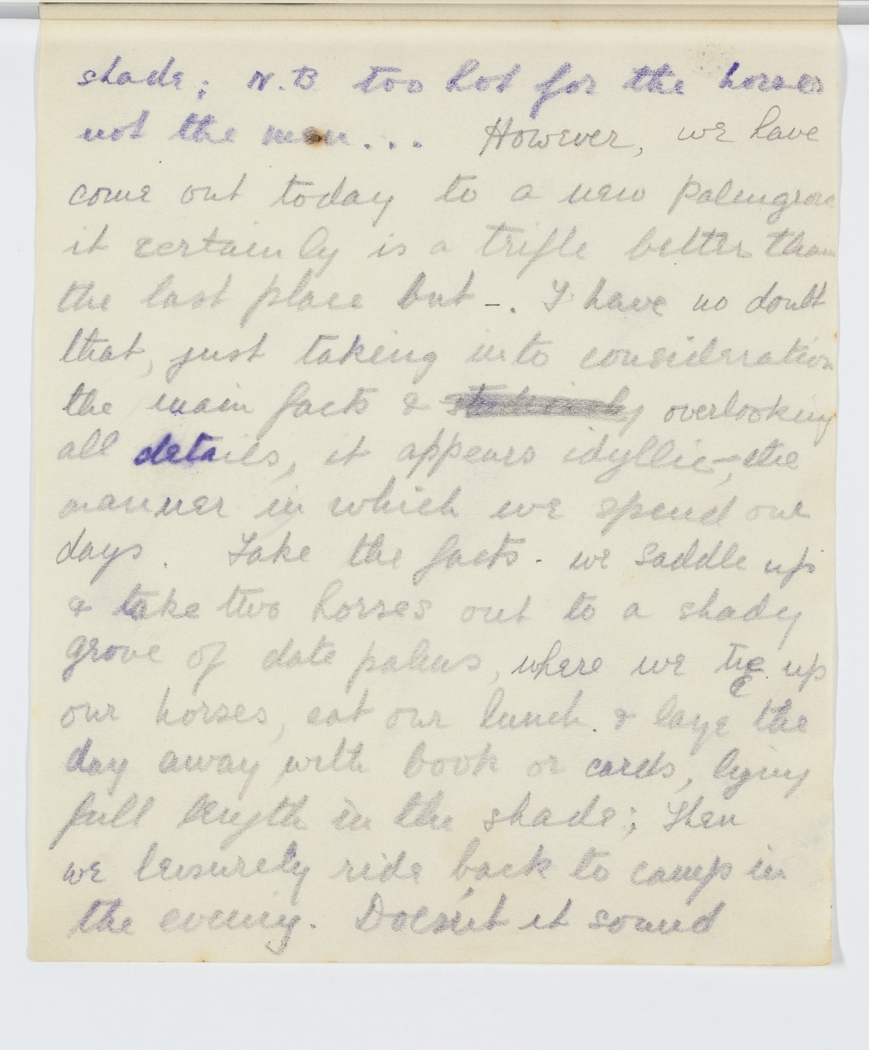 shade; N.B. too hot for the horses
not the men... However, we have
come out today to a new palmgrove
it certainly is a trifle better than
the last place but -. I have no doubt
that, just taking into consideration
the main facts & overlooking
all details, it appears idyllic -, the
manner in which we spend our
days. Take the facts - we saddle up
& take two horses out to a shady
grove of date palms, where we tie up
our horses, eat our lunch & laze the
day away with book or cards, lying
full length in the shade; then
we leisurely ride back to camp in
the evening. Doesn't it sound